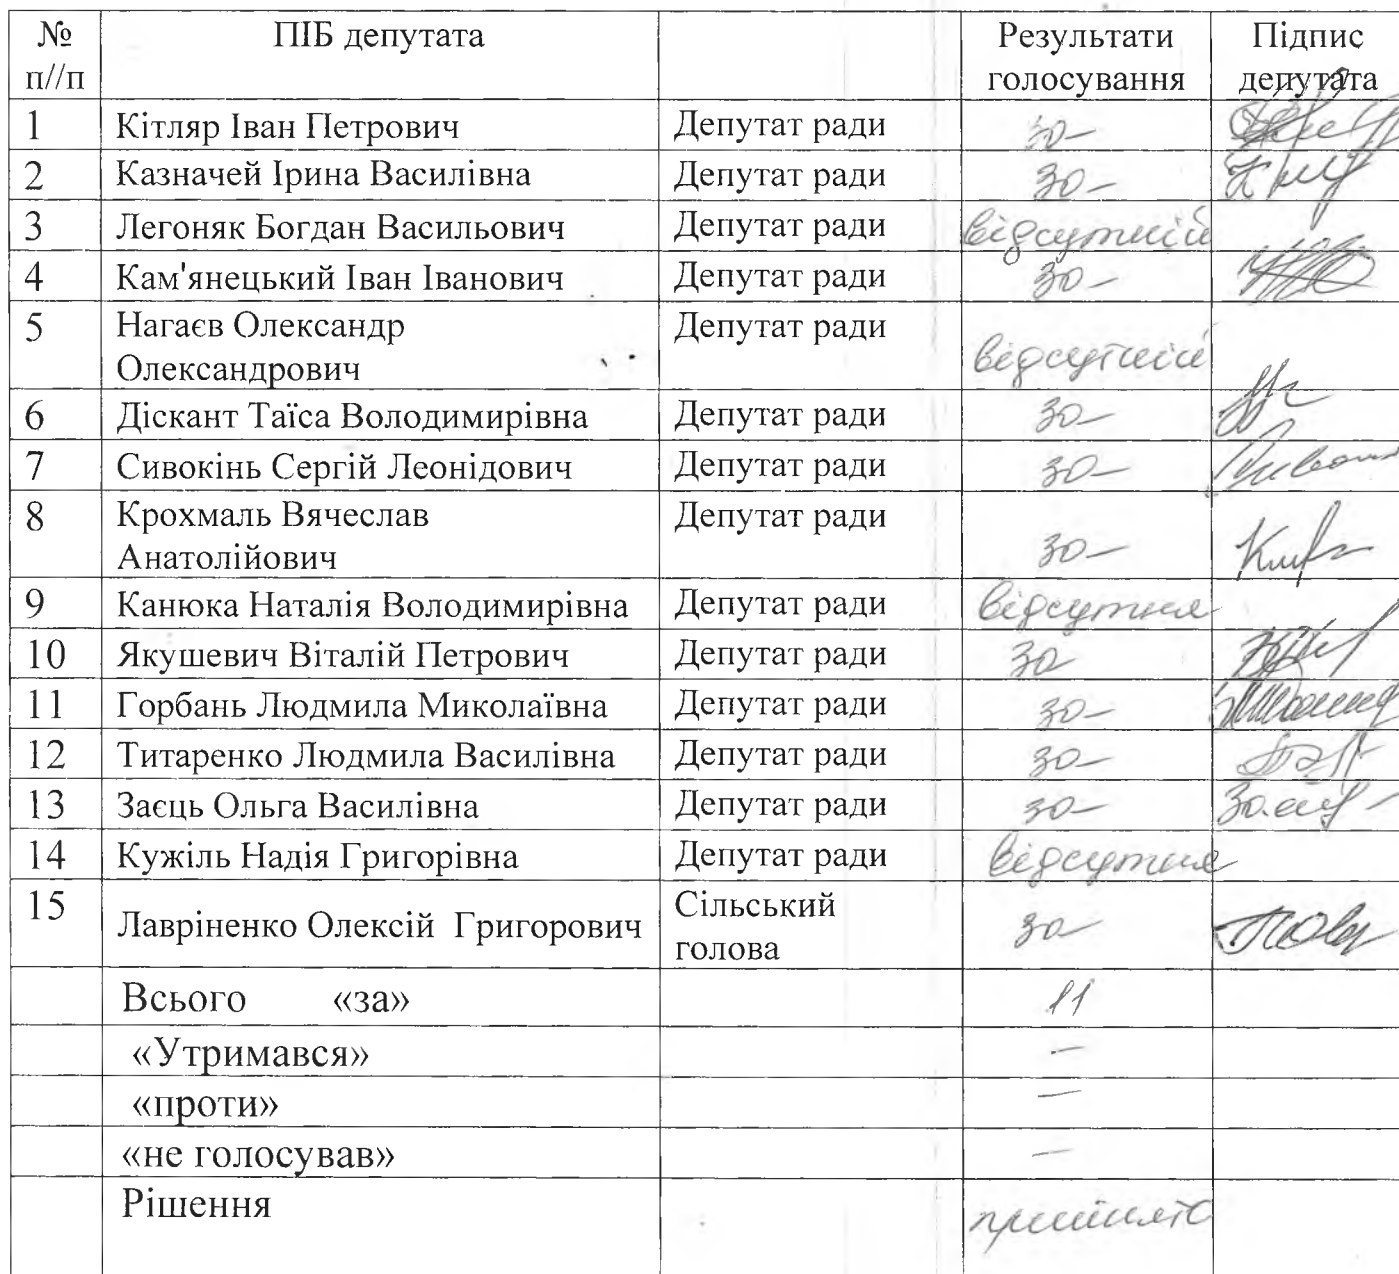 № п//п ПІБ депутата Результати голосування Підпис депутата
1 Кітляр Іван Петрович Депутат ради за
2 Казначей Ірина Василівна Депутат ради за
3 Легоняк Богдан Васильович Депутат ради відсутній
4 Кам'янецький Іван Іванович Депутат ради за
5 Нагаєв Олександр Олександрович Депутат ради відсутній
6 Діскант Таїса Володимирівна Депутат ради за
7 Сивокінь Сергій Леонідович Депутат ради за
8 Крохмаль Вячеслав Анатолійович Депутат ради за
9 Канюка Наталія Володимирівна Депутат ради відсутня
10 Якушевич Віталій Петрович Депутат ради за
11 Горбань Людмила Миколаївна Депутат ради за
12 Титаренко Людмила Василівна Депутат ради за
13 Заєць Ольга Василівна Депутат ради за
14 Кужіль Надія Григорівна Депутат ради відсутня
15 Лавріненко Олексій Григорович Сільський голова за
Всього «за» 11
«Утримався» —
«проти» —
«не голосував» —
Рішення прийнято